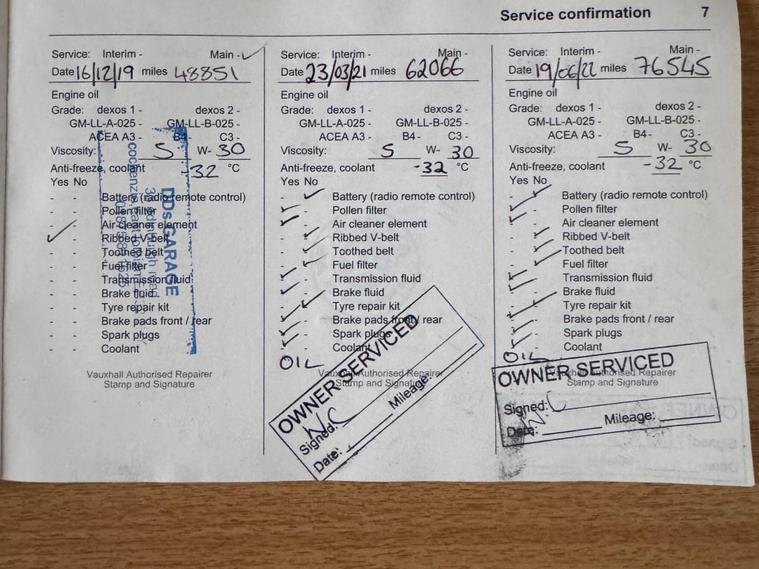 Service confirmation 7
Service: Interim - Main - ✓
Date 16/12/19 miles 48851
Engine oil
Grade: dexos 1 - dexos 2 -
GM-LL-A-025 - GM-LL-B-025 -
ACEA A3 - B4 - C3 -
Viscosity: 5 W- 30
Anti-freeze, coolant -32 °C
Yes No
- - Battery (radio remote control)
- - Pollen filter
- - Air cleaner element
✓ - Ribbed V-belt
- - Toothed belt
- - Fuel filter
- - Transmission fluid
- - Brake fluid
- - Tyre repair kit
- - Brake pads front / rear
- - Spark plugs
- - Coolant
Vauxhall Authorised Repairer
Stamp and Signature
DDs GARAGE
Service: Interim - Main -
Date 23/03/21 miles 62066
Engine oil
Grade: dexos 1 - dexos 2 -
GM-LL-A-025 - GM-LL-B-025 -
ACEA A3 - B4- C3 -
Viscosity: 5 W- 30
Anti-freeze, coolant -32 °C
Yes No
- ✓ Battery (radio remote control)
✓ - Pollen filter
✓ - Air cleaner element
- ✓ Ribbed V-belt
- - Toothed belt
- ✓ Fuel filter
✓ - Transmission fluid
- ✓ Brake fluid
- ✓ Tyre repair kit
✓ - Brake pads front / rear
✓ - Spark plugs
✓ - Coolant
OIL
Vauxhall Authorised Repairer
Stamp and Signature
OWNER SERVICED
Signed: N.C
Date: Mileage:
Service: Interim - Main -
Date 19/06/22 miles 76545
Engine oil
Grade: dexos 1 - dexos 2 -
GM-LL-A-025 - GM-LL-B-025 -
ACEA A3 - B4- C3 -
Viscosity: 5 W- 30
Anti-freeze, coolant -32 °C
Yes No
- ✓ Battery (radio remote control)
✓ - Pollen filter
✓ - Air cleaner element
- ✓ Ribbed V-belt
- ✓ Toothed belt
- ✓ Fuel filter
✓ - Transmission fluid
✓ - Brake fluid
- ✓ Tyre repair kit
✓ - Brake pads front / rear
✓ - Spark plugs
✓ - Coolant
OIL
Vauxhall Authorised Repairer
Stamp and Signature
OWNER SERVICED
Signed: N.C
Date: Mileage: